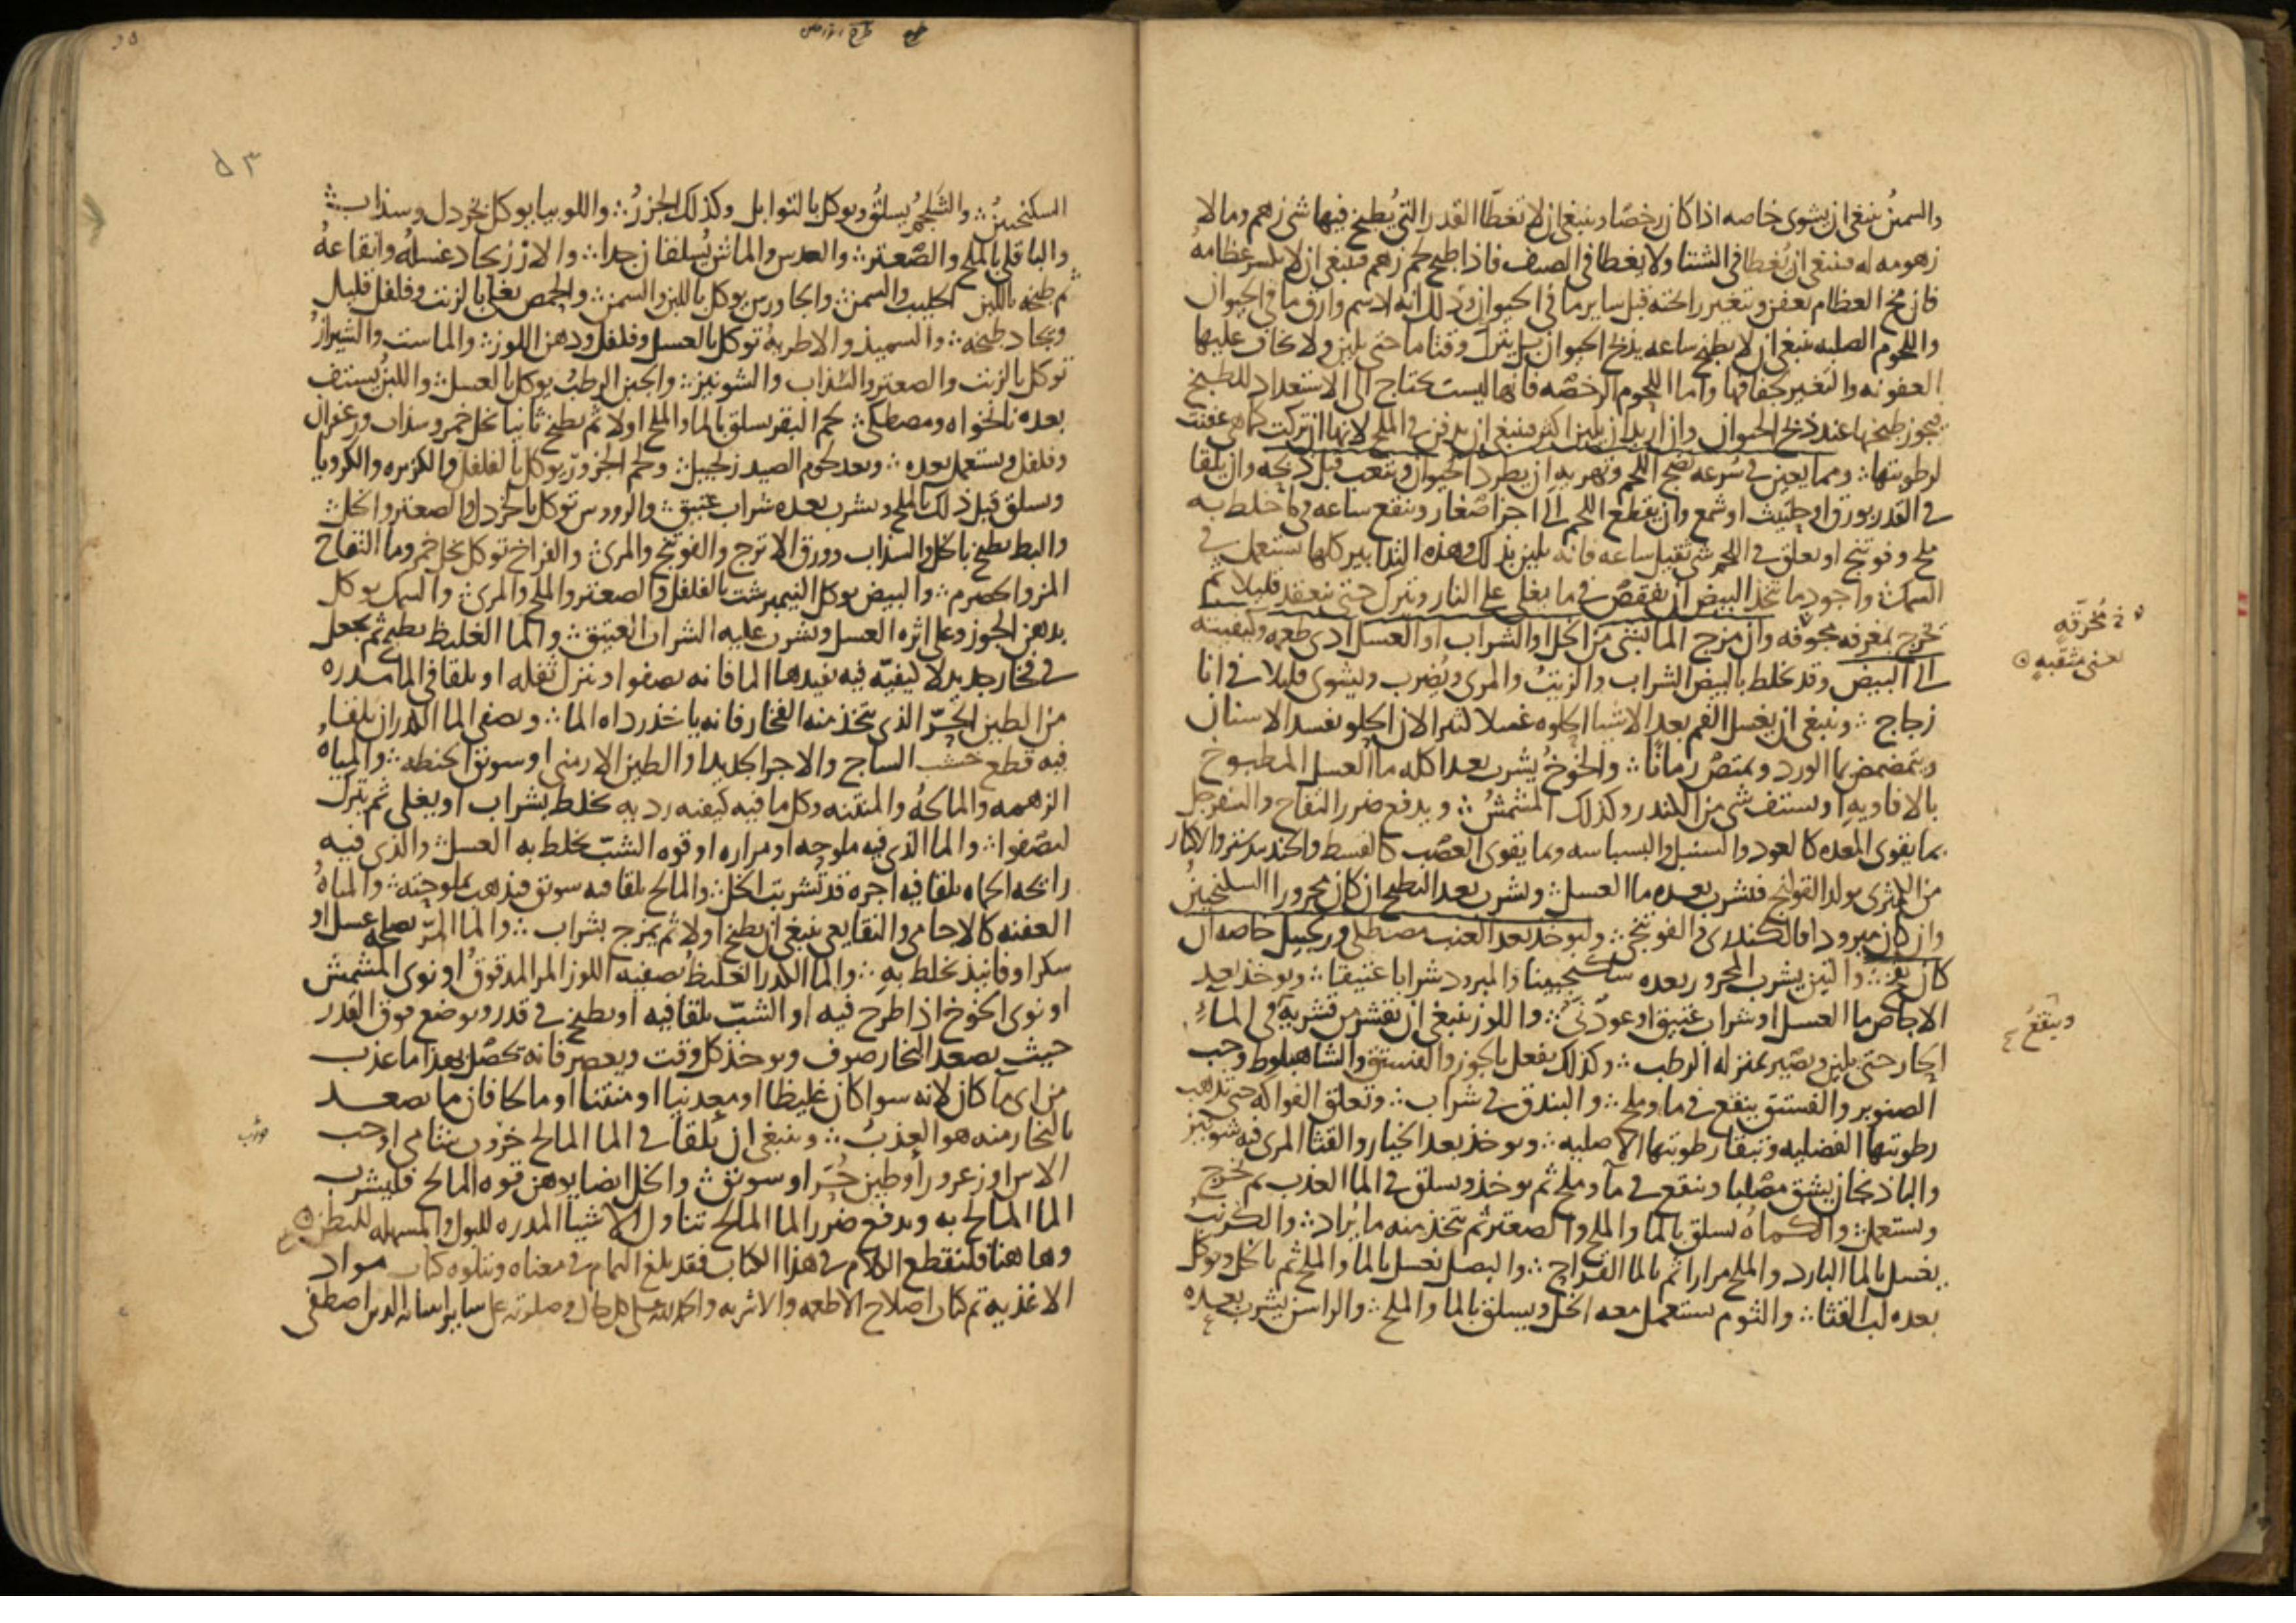 والسمين ينبغي ان يشوى خاصه اذا كان رخصا وينبغي ان لا تغطا القدر التي يُطبخ فيها شي زهم وما لا
زهومه له فينبغي ان يُغطا في الشتا ولا يغطا في الصيف فاذا طبخ لحم زهم فينبغي ان لا يكسر عظامه
فان مخ العظام يعفن وتتغير رائحته قبل ساير ما في الحيوان وذلك انه ادسم وارق ما في الحيوان
واللحوم الصلبه ينبغي ان لا يطبخ ساعه يذبح الحيوان بل يترك وقتا ما حتى يلين ولا يخاف عليها
العفونه والتغير لجفافها واما اللحوم الرخصه فانها ليست تحتاج الى الاستعداد للطبيخ
فيجوز طبخها عند ذبح الحيوان وان اريد ان يلين اكثر فينبغي ان يدفن في الملح لانها ان تركت كما هي عفنت
لرطوبتها ؞ ومما يعين في سُرعه نضج اللحم وتهريه ان يطرد الحيوان ويتعب قبل ذبحه وان يلقا
في القدر بورق او حلتيت او شمع وان يقطع اللحم الى اجزا صغار وينقع ساعه في ما خلط به
ملح وفوتنج او يعلق في اللحم شي ثقيل ساعه فانه يلين بذلك وهذه التدابير كلها يستعمل في
السمك ؞ واجود ما تتخذ البيض ان يفقص في ما يغلي على النار ويترك حتى ينعقد قليلا ثم
تخرج بمغرفه مجوفه وان مزج الما بشي من الخل او الشراب او العسل ادى طعمه وكيفيته
الى البيض وقد يخلط بالبيض الشراب والزيت والمري ويُضرب ويشوى قليلا في انا
زجاج ؞ وينبغي ان يغسل الفم بعد الاشيا الحلوه غسلا كثيرا لان الحلو يفسد الاسنان
ويتمضمض بما الورد ويمتص رمانا ؞ والخوخ يُشرب بعد اكله ما العسل المطبوخ
بالافاويه او يستف شي من الكندر وكذلك المشمش ؞ ويدفع ضرر التفاح والسفرجل
بما يقوي المعده كالعود والسنبل والبسباسه وما يقوي العصب كالقسط والجندبيدستر والاكثار
من الكمثري يولد القولنج فليشرب بعده ما العسل ؞ وليشرب بعد البطيخ ان كان محرورا السكنجبين
وان كان مبرودا فالكندري والفوتنجي ؞ وليوخذ بعد العنب مصطكي وزنجبيل خاصه ان
كان فج ؞ والتين يشرب المحرور بعده سكنجبينا والمبرود شرابا عتيقا ؞ ويوخذ بعد
الاجاص ما العسل او شراب عتيق او عود ني ؞ واللوز ينبغي ان يقشر من قشريه في الماء
الحار حتى يلين ويصير بمنزله الرطب ؞ وكذلك يفعل بالجوز والفستق والشاهبلوط وحب
الصنوبر والفستق ينقع في ما وملح ؞ والبندق في شراب ؞ وتعلق الفواكه حتى تذهب
رطوبتها الفضليه وتبقا رطوبتها الاصليه ؞ ويوخذ بعد الخيار والقثا المري فيه شونيز
والباذنجان يشق مصلبا وينقع في مآ وملح ثم يوخذ ويسلق في الما العذب ثم يخرج
ويستعمل ؞ والكماه يسلق بالما والملح والصعتر ثم تتخذ منه ما يراد ؞ والكرنب
يغسل بالما البارد والملح مرارا ثم بالما القراح ؞ والبصل يغسل بالما والملح ثم بالخل ويوكل
بعده لب القثا ؞ والثوم يستعمل معه الخل ويسلق بالما والملح ؞ والراسن يشرب بعده
مُخرّقه
يعني مثقبه
وينقعُ
السكنجبين ؞ والشلجم يسلق ويوكل بالتوابل وكذلك الجزر ؞ واللوبيا يوكل بخردل وسذاب ؞
والباقلي بالملح والصعتر ؞ والعدس والماش يُسلقان جدا ؞ والارز يجاد غسله وانقاعهُ
ثم طبخه باللبن الحليب والسمن ؞ والجاورس يوكل باللبن والسمن ؞ والحمص يغلي بالزيت وفلفل قليل
ويجاد طبخه ؞ والسميذ والاطريه توكل بالعسل وفلفل ودهن اللوز ؞ والماست والشيراز
توكل بالزيت والصعتر والسذاب والشونيز ؞ والجبن الرطب يوكل بالعسل ؞ واللبن يستف
بعده نانخواه ومصطكي ؞ لحم البقر يسلق بالما والملح اولا ثم يطبخ ثانيا بخل خمر وسذاب وزعفران
وفلفل ويستعمل بعده ؞ وبعد لحوم الصيد زنجبيل ؞ ولحم الجزور يوكل بالفلفل والكزبره والكرويا
ويسلق قبل ذلك بالملح ويشرب بعده شراب عتيق ؞ والرووس توكل بالخردل والصعتر والخل ؞
والبط يطبخ بالخل والسذاب وورق الاترج والفوتنج والمري ؞ والفراخ توكل بخل خمر وما التفاح
المز والحصرم ؞ والبيض يوكل النيمبرشت بالفلفل والصعتر والملح والمري ؞ والسمك يوكل
بدهن الجوز وعلى اثره العسل ويشرب عليه الشراب العتيق ؞ والما الغليظ يطبخ ثم يجعل
في فخار جديد لا كيفيّه فيه يفيدها الما فانه يصفوا وينزل ثفله او يلقا في الما مدره
من الطين الحرّ الذي يتخذ منه الفخار فانه ياخذ رداه الما ؞ ويصفي الما الكدر ان يلقا
فيه قطع خشب الساج والاجر الجديد او الطين الارمني او سويق الحنطه ؞ والمياه
الزهمه والمالحهُ والمنتنه وكل ما فيه كيفيه رديه تخلط بشراب او يغلي ثم يترك
ليصفوا ؞ والما الذي فيه ملوحه او مراره او قوه الشبّ يخلط به العسل ؞ والذي فيه
رائحه الحماه يلقا فيه اجره قد شربت الخل ؞ والمالح يلقا فيه سويق فيذهب بملوحته ؞ والمياهُ
العفنه كالاجامي والنقايعي ينبغي ان يطبخ اولا ثم يمزج بشراب ؞ والما المرّ يصلحه عسل او
سكر او فانيذ يخلط به ؞ والما الكدر الغليظ يصفيه اللوز المر المدقوق او نوي المشمش
او نوي الخوخ اذا طرح فيه او الشبّ يلقا فيه او يطبخ في قدر ويوضع فوق القدر
حيث يصعد البخار صوف ويوخذ كل وقت ويعصر فانه يحصل بهذا ما عذب
من اي مآ كان لانه سوا كان غليظا او معدنيا او منتنا او مالحا فان ما يصعد
بالبخار منه هو العذب ؞ وينبغي ان يُلقا في الما المالح خرنوب شامي او حب
الاس او زعرور او طين حُرّ او سويق ؞ والخل ايضا يوهن قوه المالح فليشرب
الما المالح به ويدفع ضرر الما المالح تناول الاشيا المدره للبول والمسهله للبطن
وهاهنا فلنقطع الكلام في هذا الكتاب فقد بلغ التمام في معناه ويتلوه كتاب مواد
الاغذيه تم كتاب اصلاح الاطعمه والاشربه والحمد لله على كل حال وصلوته على ساير انبيائه الذين اصطفى